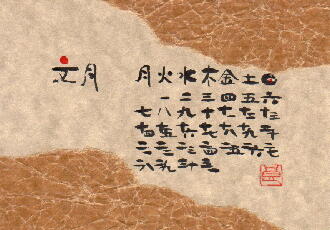 文月
月火水木金土日
一 二 三 四 五 六
七 八 九 十 十一 十二 十三
十四 十五 十六 十七 十八 十九 二十
二一 二二 二三 二四 二五 二六 二七
二八 二九 三十 三一